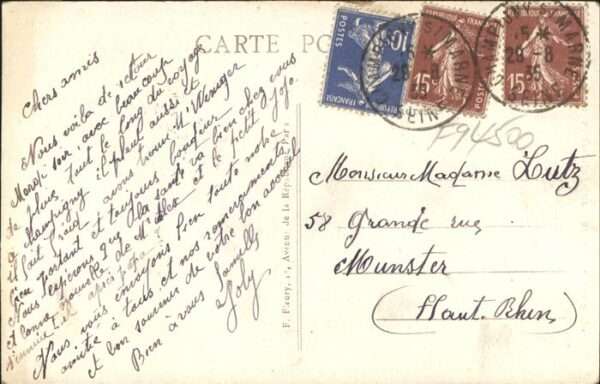 CARTE POS
POSTES
10
FRANÇAISE
15
POSTES
15
CHAMPIGNY-S-MARNE
SEINE
28-8
35
F94500
Chers amis
Nous voila de retour
Mardi soir avec beaucoup
de pluie tout le long du voyage
a Champigny il pleut aussi et
il fait froid avons trouvé Mr Weniger
bien portant et toujours bonjour
Nous espérons que la santé va bien chez vous
et bonne tournée de Mr Alex et le petit Jojo.
s'ennuie t-il après
Nous vous envoyons bien toute notre
amitié a tous et nos remerciements
et bon souvenir de votre bon accueil
Bien a vous Famille
Joly
F. Fleury, Avenue de la République, Paris
Monsieur Madame Lutz
58 Grande rue
Munster
(Haut-Rhin)